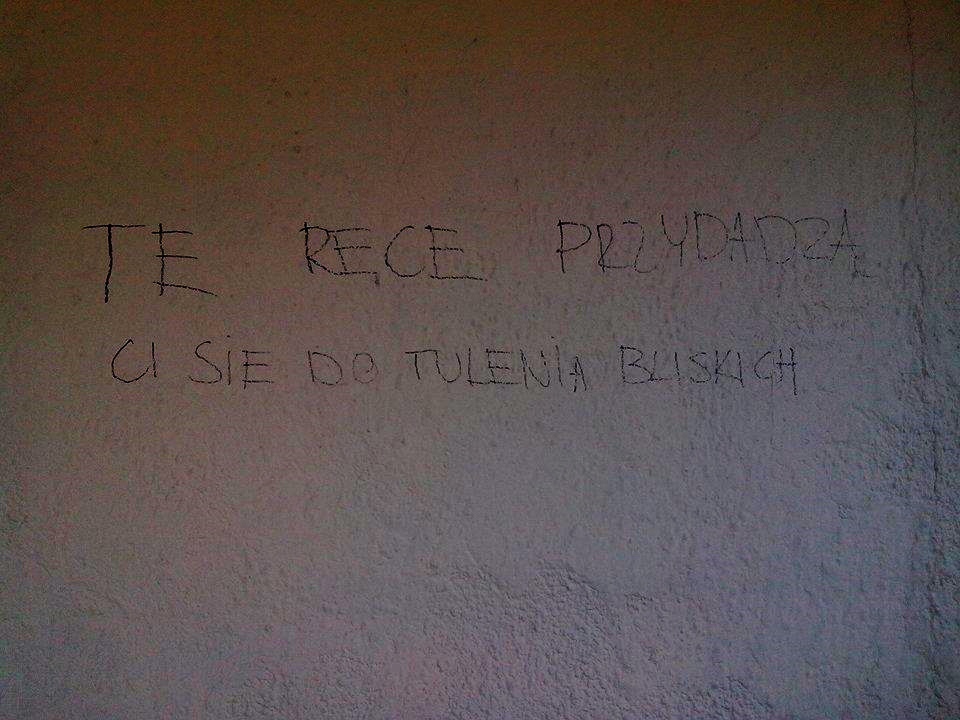 TE RĘCE PRZYDADZĄ
CI SIE DO TULENIA BLISKICH